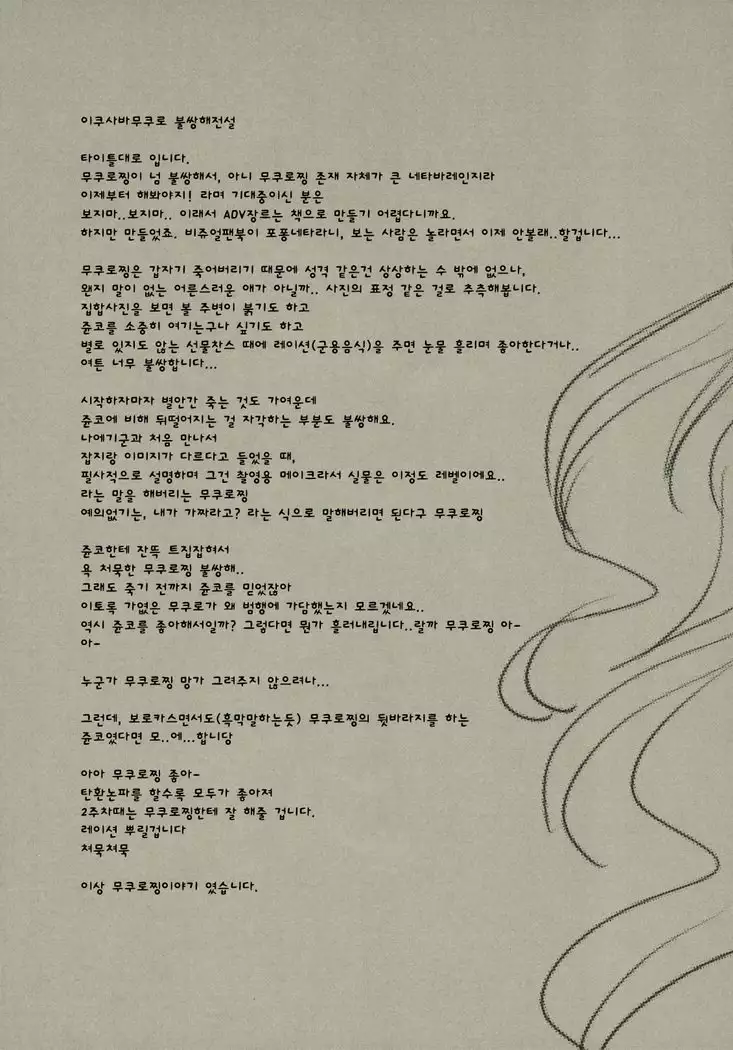 이쿠사바무쿠로 불쌍해전설
타이틀대로 입니다.
무쿠로찡이 넘 불쌍해서, 아니 무쿠로찡 존재 자체가 큰 네타바레인지라
이제부터 해봐야지! 라며 기대중이신 분은
보지마..보지마.. 이래서 ADV장르는 책으로 만들기 어렵다니까요.
하지만 만들었죠. 비쥬얼팬북이 포퐁네타라니, 보는 사람은 놀라면서 이제 안볼래..할겁니다...
무쿠로찡은 갑자기 죽어버리기 때문에 성격 같은건 상상하는 수 밖에 없으나,
왠지 말이 없는 어른스러운 애가 아닐까.. 사진의 표정 같은 걸로 추측해봅니다.
집합사진을 보면 볼 주변이 붉기도 하고
쥰코를 소중히 여기는구나 싶기도 하고
별로 있지도 않는 선물찬스 때에 레이션(군용음식)을 주면 눈물 흘리며 좋아한다거나..
여튼 너무 불쌍합니다...
시작하자마자 별안간 죽는 것도 가여운데
쥰코에 비해 뒤떨어지는 걸 자각하는 부분도 불쌍해요.
나에기군과 처음 만나서
잡지랑 이미지가 다르다고 들었을 때,
필사적으로 설명하며 그건 촬영용 메이크라서 실물은 이정도 레벨이에요..
라는 말을 해버리는 무쿠로찡
예의없기는, 내가 가짜라고? 라는 식으로 말해버리면 된다구 무쿠로찡
쥰코한테 잔뜩 트집잡혀서
욕 처묵한 무쿠로찡 불쌍해..
그래도 죽기 전까지 쥰코를 믿었잖아
이토록 가엾은 무쿠로가 왜 범행에 가담했는지 모르겠네요..
역시 쥰코를 좋아해서일까? 그럼다면 뭔가 흘러내립니다..랄까 무쿠로찡 아-
아-
누군가 무쿠로찡 망가 그려주지 않으려나...
그런데, 보로카스면서도(흑막말하는듯) 무쿠로찡의 뒷바라지를 하는
쥰코였다면 모..에...합니당
아아 무쿠로찡 좋아-
탄환논파를 할수록 모두가 좋아져
2주차때는 무쿠로찡한테 잘 해줄 겁니다.
레이션 뿌릴겁니다
쳐묵쳐묵
이상 무쿠로찡이야기 였습니다.